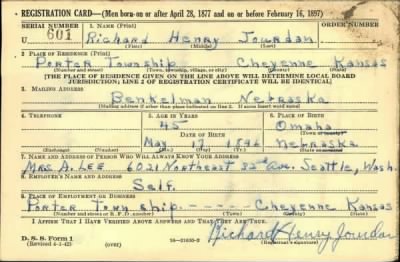 REGISTRATION CARD—(Men born on or after April 28, 1877 and on or before February 16, 1897)
SERIAL NUMBER 1. NAME (Print) ORDER NUMBER
U 601 Richard Henry Jourdan
(First) (Middle) (Last)
2. PLACE OF RESIDENCE (Print)
Porter Township Cheyenne Kansas
(Number and street) (Town, township, village, or city) (County) (State)
[THE PLACE OF RESIDENCE GIVEN ON THE LINE ABOVE WILL DETERMINE LOCAL BOARD
JURISDICTION; LINE 2 OF REGISTRATION CERTIFICATE WILL BE IDENTICAL]
3. MAILING ADDRESS
Benkelman Nebraska
4. TELEPHONE 5. AGE IN YEARS 6. PLACE OF BIRTH
45 Omaha
DATE OF BIRTH
May 17 1896 Nebraska
(Exchange) (Number) (Mo.) (Day) (Yr.) (State or country)
7. NAME AND ADDRESS OF PERSON WHO WILL ALWAYS KNOW YOUR ADDRESS
Mrs A. LEE 6021 Northeast 32nd Ave. Seattle, Wash.
8. EMPLOYER'S NAME AND ADDRESS
Self.
9. PLACE OF EMPLOYMENT OR BUSINESS
Porter Town ship ------ Cheyenne Kansas
(Number and street or R. F. D. number) (Town) (County) (State)
I AFFIRM THAT I HAVE VERIFIED ABOVE ANSWERS AND THAT THEY ARE TRUE.
D. S. S. Form 1
(Revised 4-1-42) (over) Richard Henry Jourdan
(Registrant's signature)